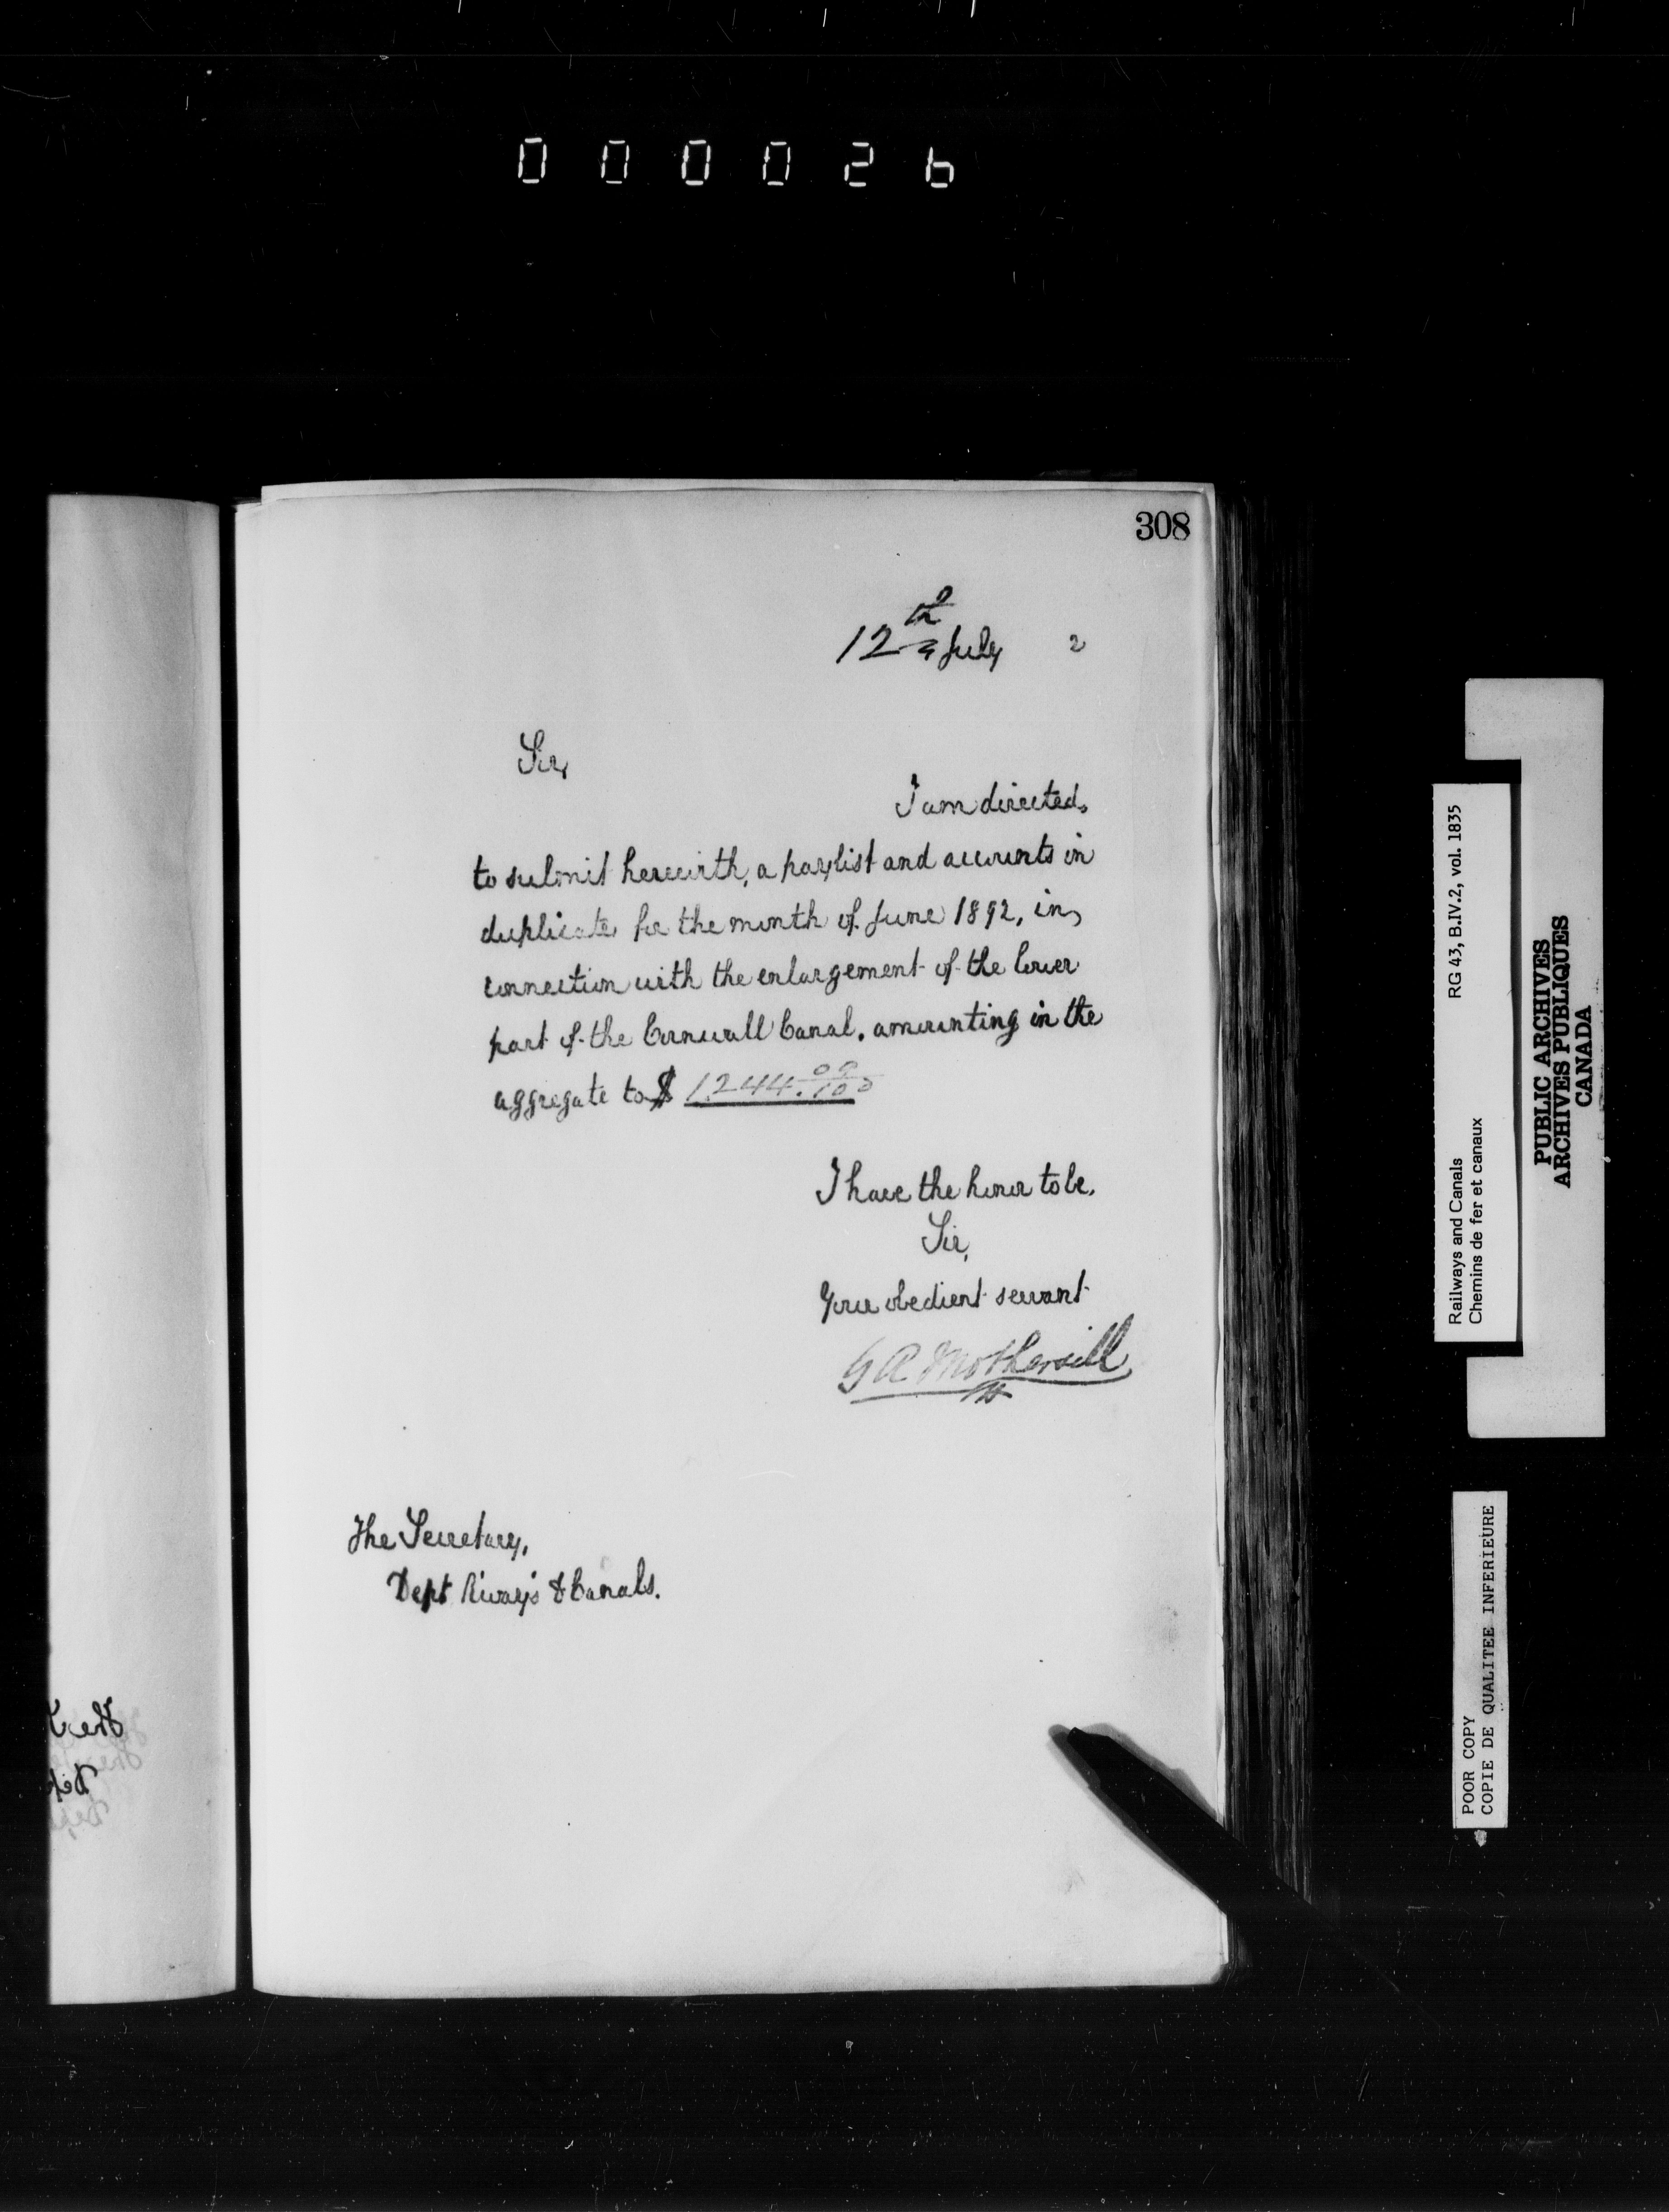 000026
308
12th July 2
Sir,
I am directed,
to submit herewith, a paylist and accounts in
duplicate for the month of June 1892, in,
connection with the enlargement of the lower
part of the Cornwall Canal. amounting in the
aggregate to $ 1,244.09/100
I have the honor to be.
Sir,
Your obedient servant
G A Mothersill
The Secretary,
Dept R'ways & Canals.
Railways and Canals RG 43, B.IV.2, vol. 1835
Chemins de fer et canaux
PUBLIC ARCHIVES
ARCHIVES PUBLIQUES
CANADA
POOR COPY
COPIE DE QUALITEE INFERIEURE